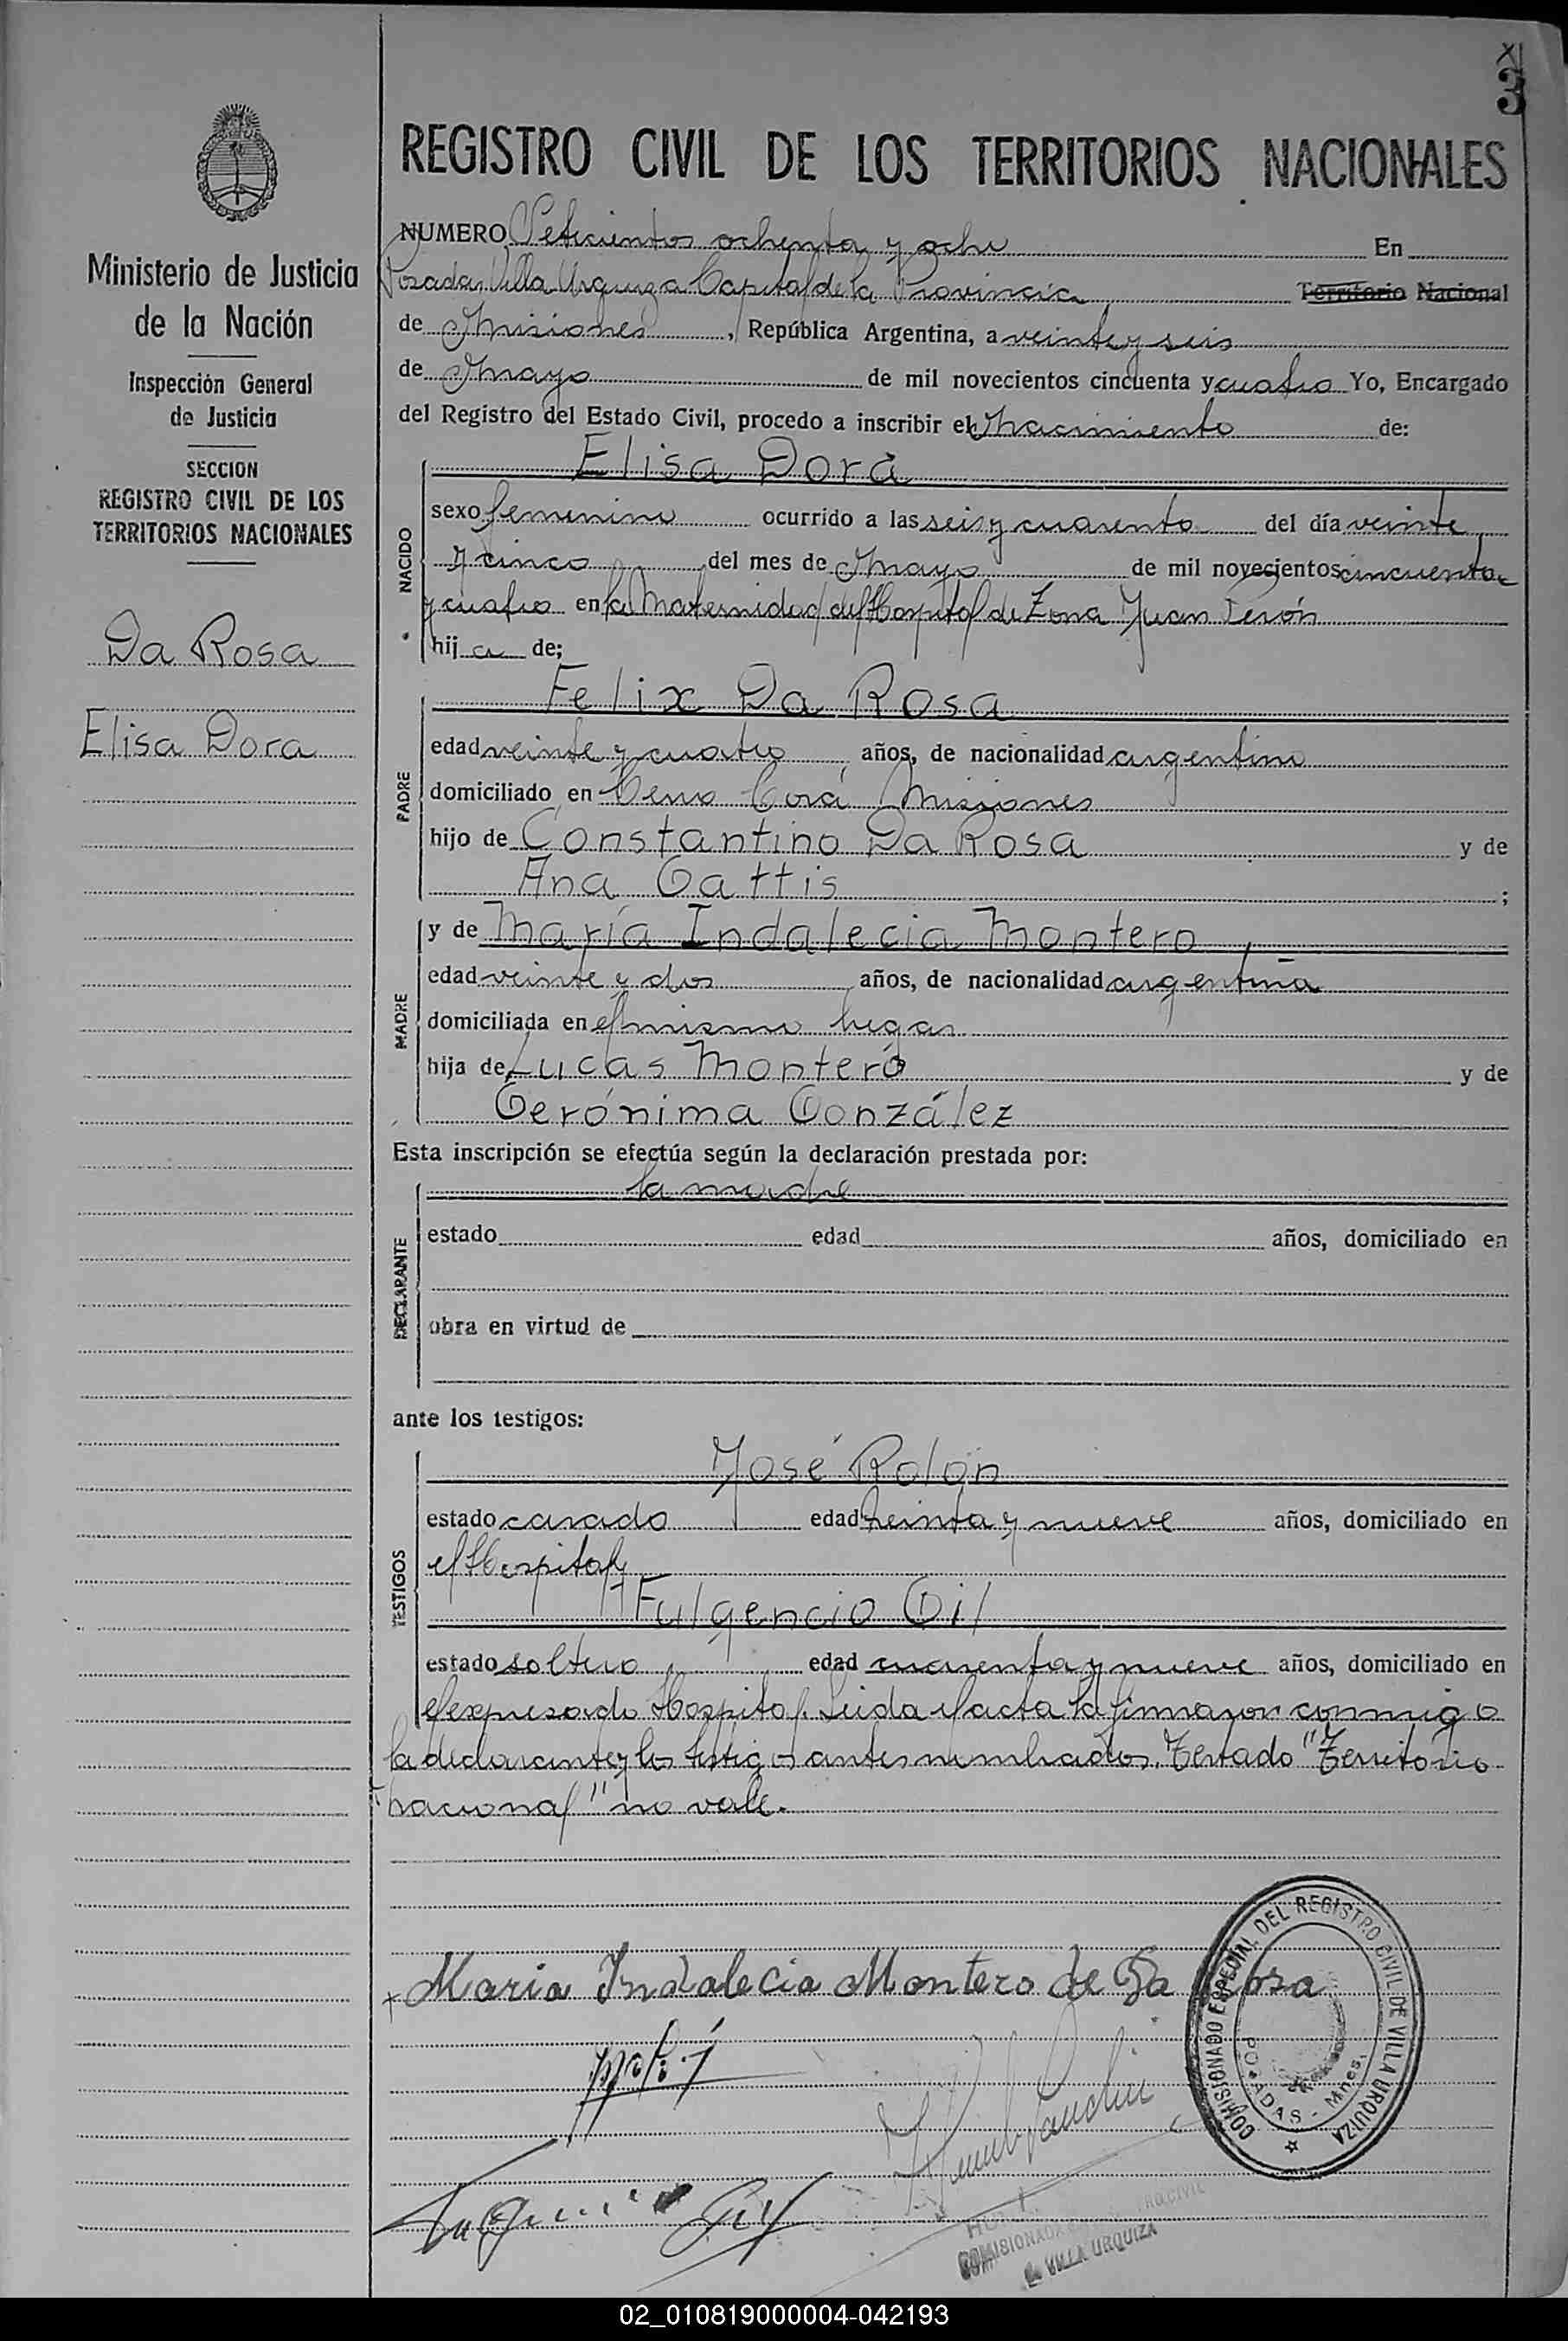 X
3
REGISTRO CIVIL DE LOS TERRITORIOS NACIONALES
Ministerio de Justicia
de la Nación
Inspección General
de Justicia
SECCION
REGISTRO CIVIL DE LOS
TERRITORIOS NACIONALES
Da Rosa
Elisa Dora
NUMERO Setecientos ochenta y ocho En
Posadas Villa Urquiza Capital de la Provincia Territorio Nacional
de Misiones, República Argentina, a veinte y seis
de Mayo de mil novecientos cincuenta y cuatro Yo, Encargado
del Registro del Estado Civil, procedo a inscribir el Nacimiento de:
NACIDO
Elisa Dora
sexo femenino ocurrido a las seis y cuarenta del día veinte
y cinco del mes de Mayo de mil novecientos cincuenta
y cuatro en la Maternidad del Hospital de Zona Juan Perón
hij a de;
PADRE
Felix Da Rosa
edad veinte y cuatro años, de nacionalidad argentino
domiciliado en Cerro Corá Misiones
hijo de Constantino Da Rosa y de
Ana Gattis ;
MADRE
y de María Indalecia Montero,
edad veinte y dos años, de nacionalidad argentina
domiciliada en el mismo lugar
hija de Lucas Montero y de
Gerónima González
Esta inscripción se efectúa según la declaración prestada por:
DECLARANTE
la madre
estado edad años, domiciliado en
obra en virtud de
ante los testigos:
TESTIGOS
José Rolón
estado casado edad treinta y nueve años, domiciliado en
el Hospital y
Fulgencio Gil
estado soltero edad cuarenta y nueve años, domiciliado en
el expresado Hospital. Leida el acta la firmaron conmigo
la declarante y los testigos antes nombrados. Testado "Territorio
nacional" no vale.
Maria Indalecia Montero de Da Rosa
COMISIONADO ESPECIAL DEL REGISTRO CIVIL DE VILLA URQUIZA
POSADAS - Mnes.
Gil
COMISIONADA
VILLA URQUIZA
02_010819000004-042193